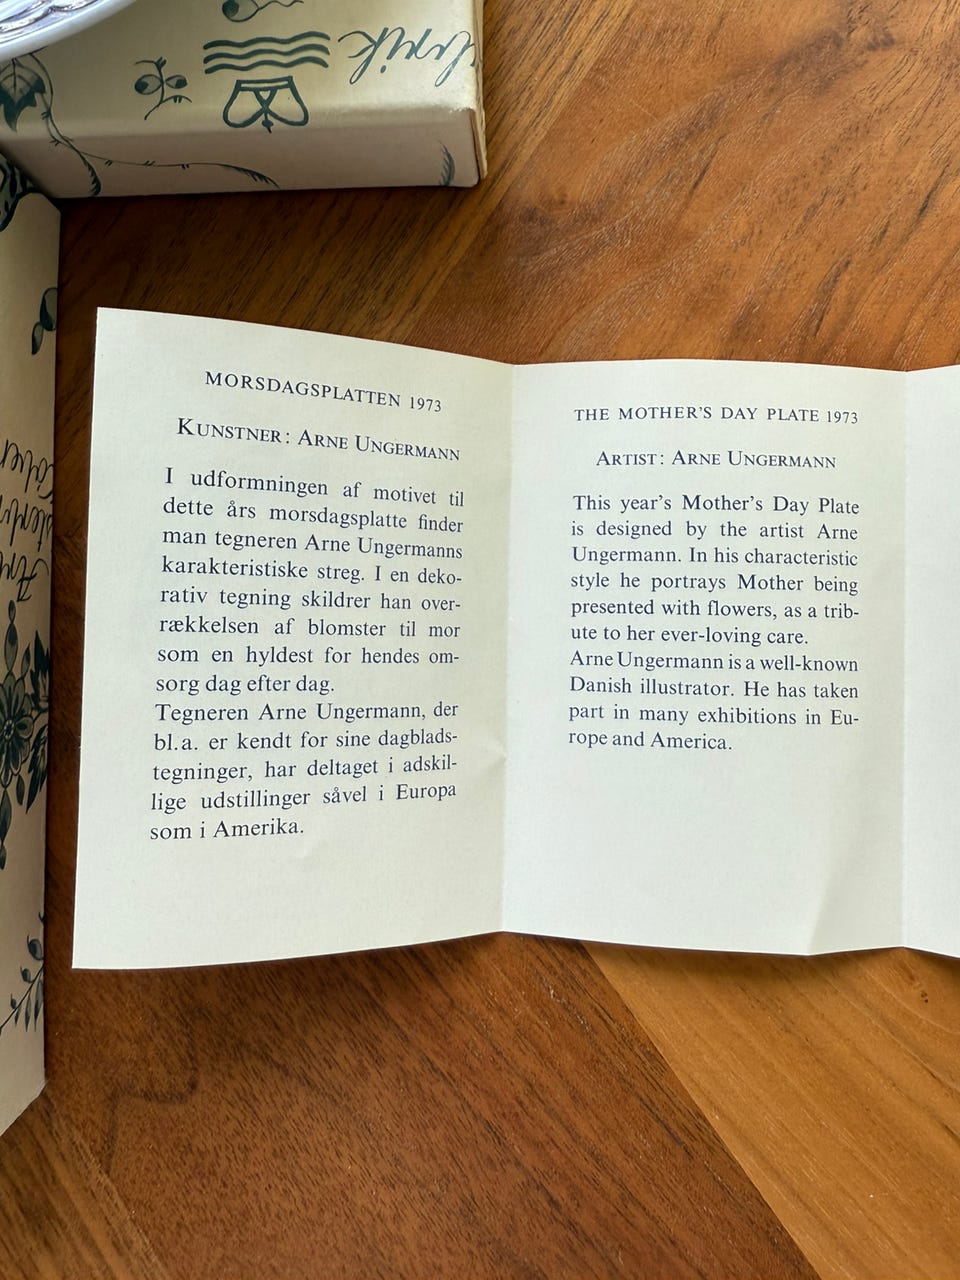 MORSDAGSPLATTEN 1973
KUNSTNER: ARNE UNGERMANN
I udformningen af motivet til
dette års morsdagsplatte finder
man tegneren Arne Ungermanns
karakteristiske streg. I en deko-
rativ tegning skildrer han over-
rækkelsen af blomster til mor
som en hyldest for hendes om-
sorg dag efter dag.
Tegneren Arne Ungermann, der
bl.a. er kendt for sine dagblads-
tegninger, har deltaget i adskil-
lige udstillinger såvel i Europa
som i Amerika.
THE MOTHER'S DAY PLATE 1973
ARTIST: ARNE UNGERMANN
This year's Mother's Day Plate
is designed by the artist Arne
Ungermann. In his characteristic
style he portrays Mother being
presented with flowers, as a trib-
ute to her ever-loving care.
Arne Ungermann is a well-known
Danish illustrator. He has taken
part in many exhibitions in Eu-
rope and America.